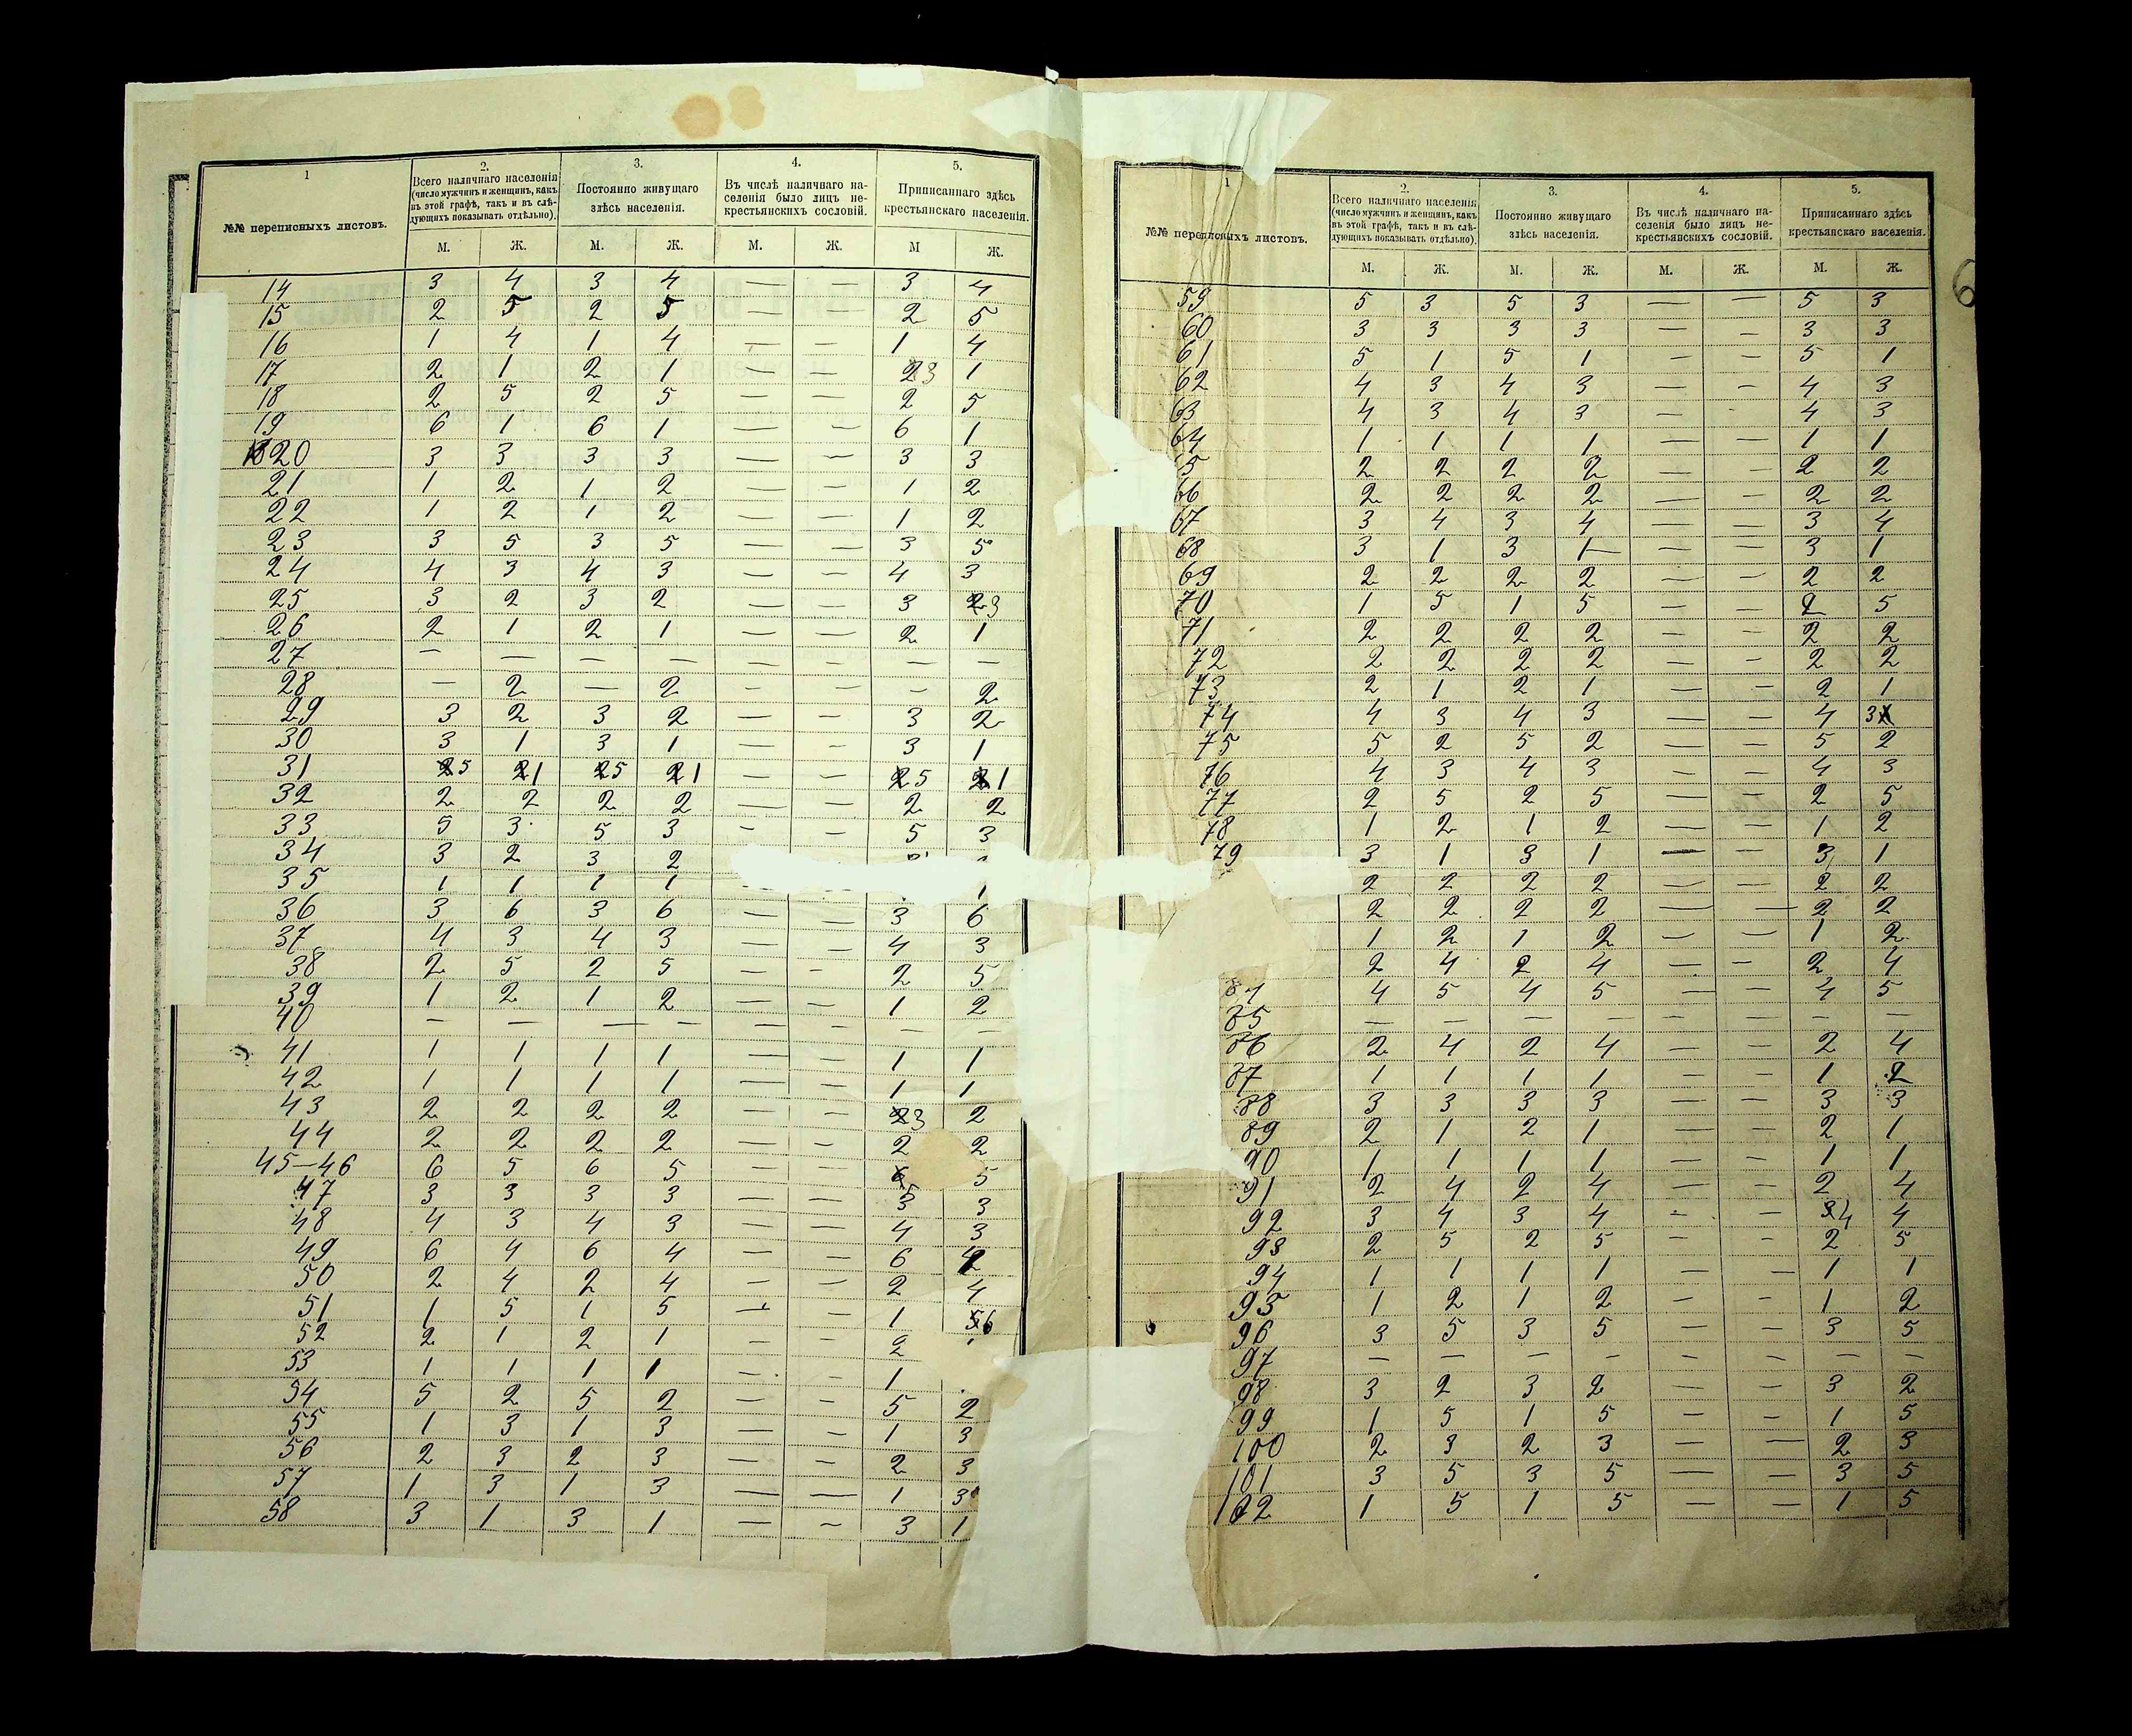 1
2.
3.
4.
5.
№№ переписныхъ листовъ.
Всего наличнаго населенія
(число мужчинъ и женщинъ, какъ
въ этой графѣ, такъ и въ слѣ-
дующихъ показывать отдѣльно).
Постоянно живущаго
здѣсь населенія.
Въ числѣ наличнаго на-
селенія было лицъ не-
крестьянскихъ сословій.
Приписаннаго здѣсь
крестьянскаго населенія.
М. Ж. М. Ж. М. Ж. М Ж.
14 3 4 3 4 — — 3 4
15 2 5 2 5 — — 2 5
16 1 4 1 4 — — 1 4
17 2 1 2 1 — — 23 1
18 2 5 2 5 — — 2 5
19 6 1 6 1 — — 6 1
20 3 3 3 3 — — 3 3
21 1 2 1 2 — — 1 2
22 1 2 1 2 — — 1 2
23 3 5 3 5 — — 3 5
24 4 3 4 3 — — 4 3
25 3 2 3 2 — — 3 23
26 2 1 2 1 — — 2 1
27 — — — — — — — —
28 — 2 — 2 — — — 2
29 3 2 3 2 — — 3 2
30 3 1 3 1 — — 3 1
31 25 21 25 21 — — 25 21
32 2 2 2 2 — — 2 2
33 5 3 5 3 — — 5 3
34 3 2 3 2
35 1 1 1 1 — 1
36 3 6 3 6 — — 3 6
37 4 3 4 3 — — 4 3
38 2 5 2 5 — — 2 5
39 1 2 1 2 — — 1 2
40 — — — — — — — —
41 1 1 1 1 — — 1 1
42 1 1 1 1 — — 1 1
43 2 2 2 2 — — 23 2
44 2 2 2 2 — — 2 2
45—46 6 5 6 5 — — 6 5
47 3 3 3 3 — — 3 3
48 4 3 4 3 — — 4 3
49 6 4 6 4 — — 6
50 2 4 2 4 — — 2 4
51 1 5 1 5 — — 1 56
52 2 1 2 1 — — 2
53 1 1 1 1 — — 1
54 5 2 5 2 — — 5 2
55 1 3 1 3 — — 1 3
56 2 3 2 3 — — 2 3
57 1 3 1 3 — — 1 3
58 3 1 3 1 — — 3 1
1
2.
3.
4.
5.
№№ переписныхъ листовъ.
Всего наличнаго населенія
(число мужчинъ и женщинъ, какъ
въ этой графѣ, такъ и въ слѣ-
дующихъ показывать отдѣльно).
Постоянно живущаго
здѣсь населенія.
Въ числѣ наличнаго на-
селенія было лицъ не-
крестьянскихъ сословій.
Приписаннаго здѣсь
крестьянскаго населенія.
М. Ж. М. Ж. М. Ж. М. Ж.
6
59 5 3 5 3 — — 5 3
60 3 3 3 3 — — 3 3
61 5 1 5 1 — — 5 1
62 4 3 4 3 — — 4 3
63 4 3 4 3 — 4 3
64 1 1 1 1 — — 1 1
65 2 2 2 2 — — 2 2
66 2 2 2 2 — — 2 2
67 3 4 3 4 — — 3 4
68 3 1 3 1 — — 3 1
69 2 2 2 2 — — 2 2
70 1 5 1 5 — — 2 5
71 2 2 2 2 — — 2 2
72 2 2 2 2 — — 2 2
73 2 1 2 1 — — 2 1
74 4 3 4 3 — — 4 3
75 5 2 5 2 — — 5 2
76 4 3 4 3 — — 4 3
77 2 5 2 5 — — 2 5
78 1 2 1 2 — — 1 2
79 3 1 3 1 — — 3 1
2 2 2 2 — — 2 2
2 2 2 2 — — 2 2
1 2 1 2 — — 1 2
2 4 2 4 — — 2 4
84 4 5 4 5 — — 4 5
85 — — — — — — — —
86 2 4 2 4 — — 2 4
87 1 1 1 1 — — 1 2
88 3 3 3 3 — — 3 3
89 2 1 2 1 — — 2 1
90 1 1 1 1 — — 1 1
91 2 4 2 4 — — 2 4
92 3 4 3 4 — — 34 4
93 2 5 2 5 — — 2 5
94 1 1 1 1 — — 1 1
95 1 2 1 2 — — 1 2
96 3 5 3 5 — — 3 5
97 — — — — — — — —
98 3 2 3 2 — — 3 2
99 1 5 1 5 — — 1 5
100 2 3 2 3 — — 2 3
101 3 5 3 5 — — 3 5
102 1 5 1 5 — — 1 5